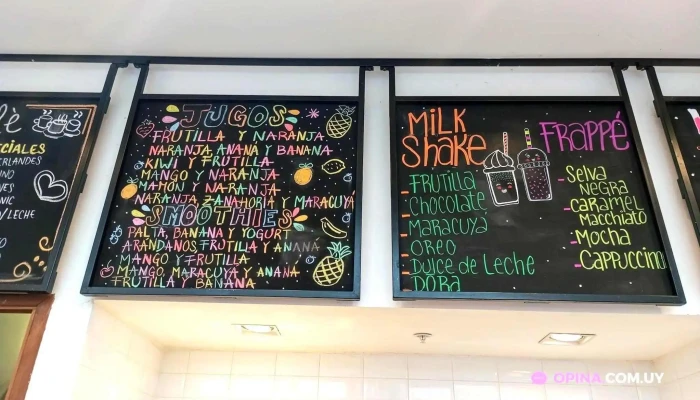 è
CIALES
ERLANDES
INO
VES
NIC
O/LECHE
JUGOS
FRUTILLA Y NARANJA
NARANJA, ANANÁ Y BANANA
KIWI Y FRUTILLA
MANGO Y NARANJA
MAMÓN Y NARANJA
NARANJA, ZANAHORIA Y MARACUYA
SMOOTHIES
PALTA, BANANA Y YOGURT
ARANDANOS, FRUTILLA Y ANANA
MANGO Y FRUTILLA
MANGO, MARACUYA Y ANANA
FRUTILLA Y BANANA
MILK
Shake
FRUTILLA
Chocolate
MARACUYÁ
OREO
Dulce de Leche
DORA
FRAPPÉ
Selva
NEGRA
CARAMEL
MACCHIATO
MOCHA
CAPPUCCINO
OPINA.COM.UY